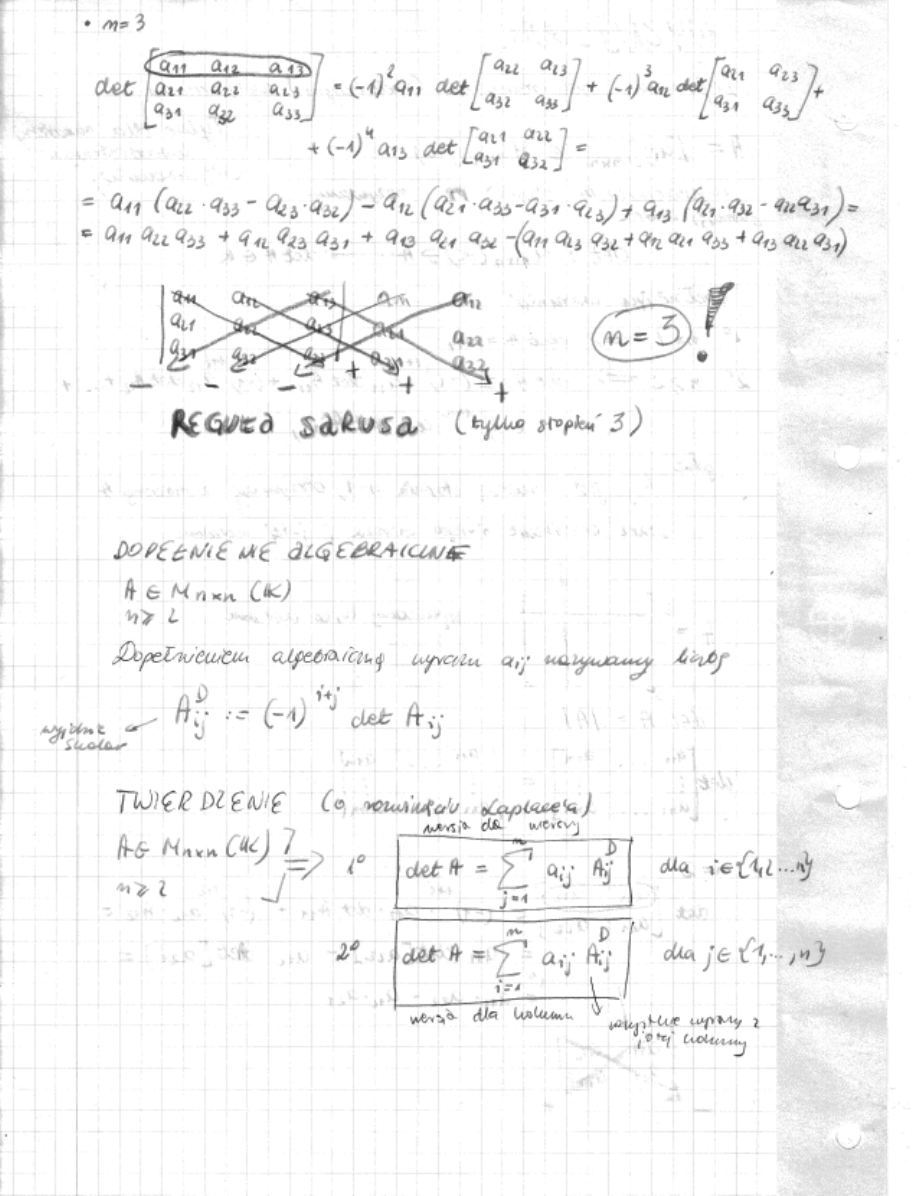 • n=3
det [a11 a12 a13 a21 a22 a23 a31 a32 a33] = (-1)^2 a11 det [a22 a23 a32 a33] + (-1)^3 a12 det [a21 a23 a31 a33] +
+ (-1)^4 a13 det [a21 a22 a31 a32] =
= a11 (a22 · a33 - a23 · a32) - a12 (a21 · a33 - a31 · a23) + a13 (a21 · a32 - a22 a31) =
= a11 a22 a33 + a12 a23 a31 + a13 a21 a32 - (a11 a23 a32 + a12 a21 a33 + a13 a22 a31)
a11 a12 a13 a11 a12
a21 a22 a23 a21 a22
a31 a32 a33 a31 a32
- - - + + +
n=3 !
REGUŁA SARUSA (tylko stopień 3)
DOPEŁNIENIE ALGEBRAICZNE
A ∈ Mnxn (K)
n ≥ 2
Dopełnieniem algebraiczną wyrazu aij nazywamy liczbę
A^D ij := (-1)^i+j det Aij
skalar
TWIERDZENIE (o rozwinięciu Laplace'a)
wersja dla wierszy
A ∈ Mnxn (K) ⟹ 1° det A = n ∑ j=1 aij A^D ij dla i ∈ {1,2...n}
n ≥ 2
2° det A = n ∑ i=1 aij A^D ij dla j ∈ {1,...,n}
wersja dla kolumn
wszystkie wyrazy z
j-tej kolumny